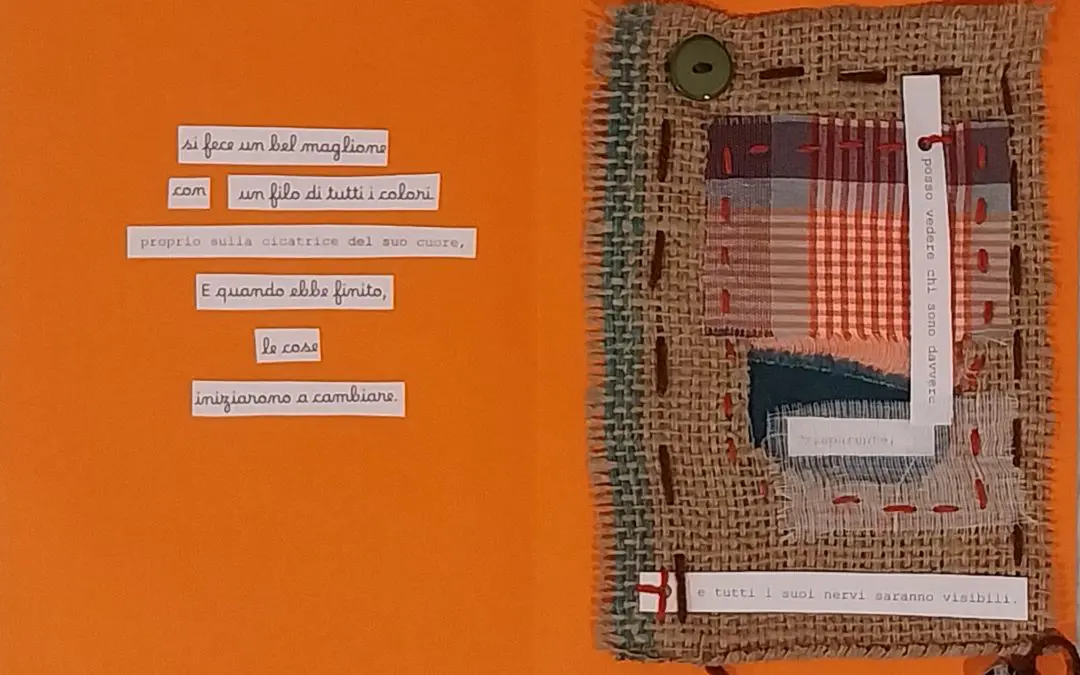 si fece un bel maglione
con un filo di tutti i colori
proprio sulla cicatrice del suo cuore,
E quando ebbe finito,
le cose
iniziarono a cambiare.
posso vedere chi sono davvero
trasparente,
e tutti i suoi nervi saranno visibili.